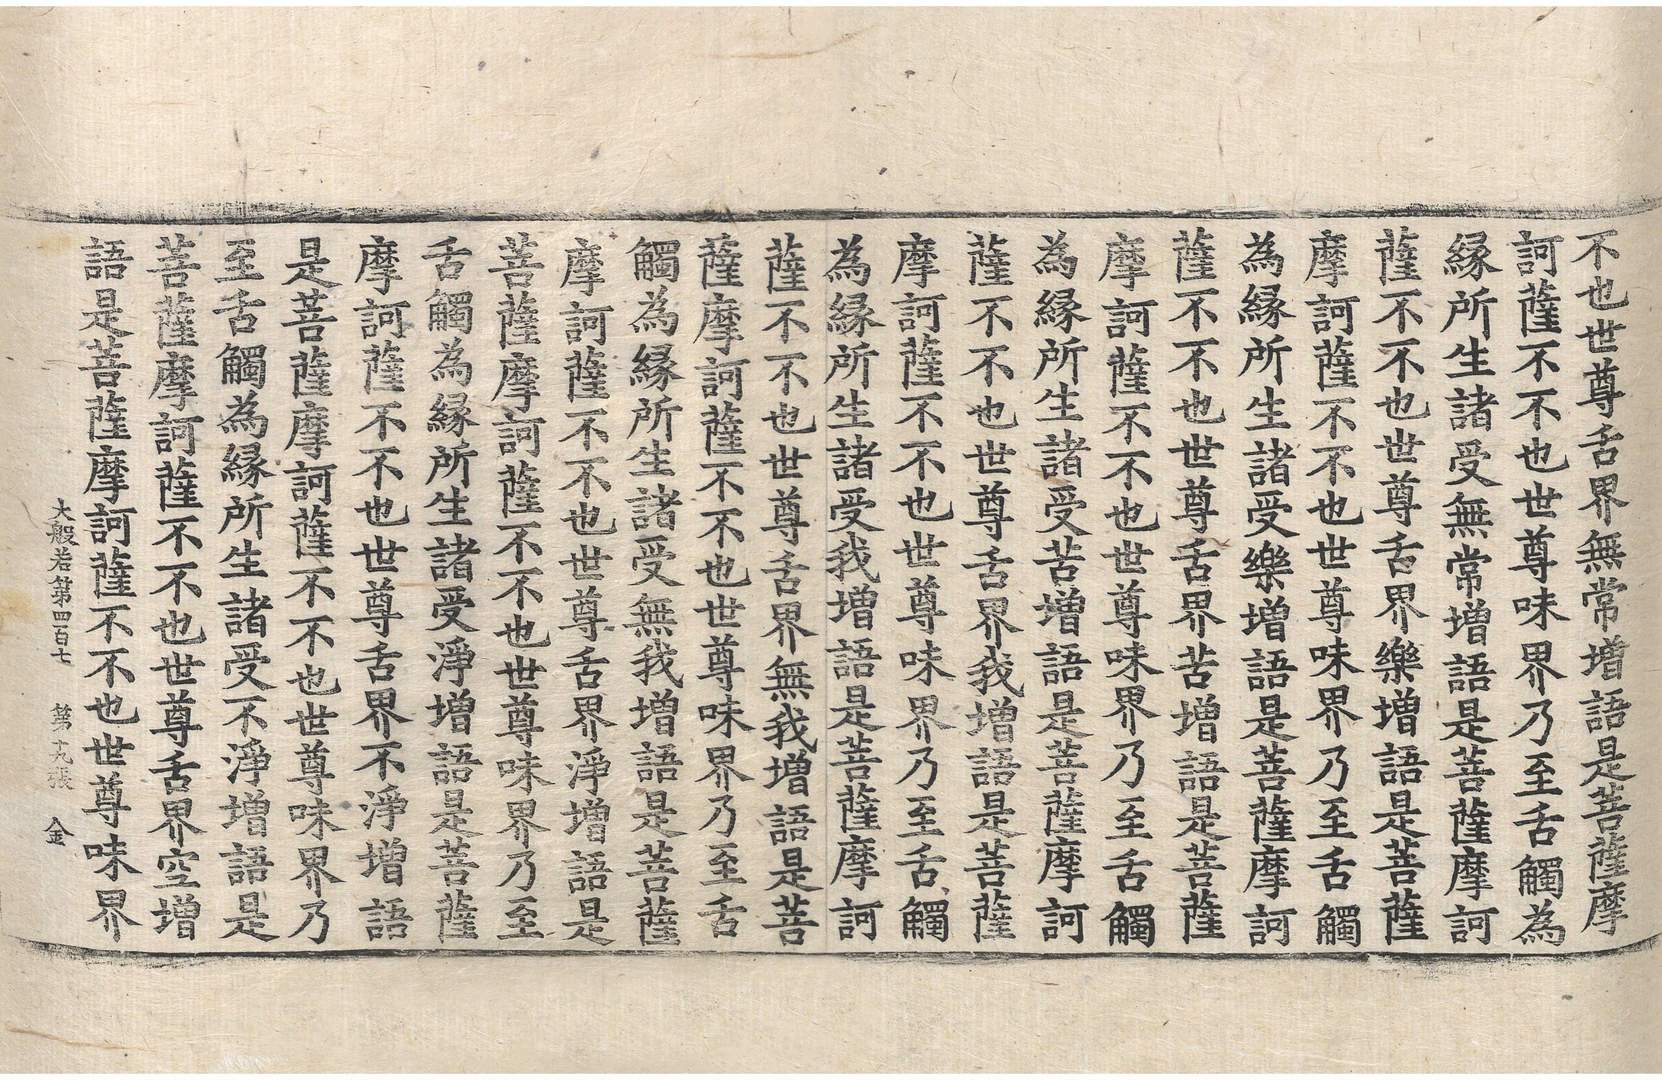 不也世尊舌界無常增語是菩薩摩
訶薩不不也世尊味界乃至舌觸為
緣所生諸受無常增語是菩薩摩訶
薩不不也世尊舌界樂增語是菩薩
摩訶薩不不也世尊味界乃至舌觸
為緣所生諸受樂增語是菩薩摩訶
薩不不也世尊舌界苦增語是菩薩
摩訶薩不不也世尊味界乃至舌觸
為緣所生諸受苦增語是菩薩摩訶
薩不不也世尊舌界我增語是菩薩
摩訶薩不不也世尊味界乃至舌觸
為緣所生諸受我增語是菩薩摩訶
薩不不也世尊舌界無我增語是菩
薩摩訶薩不不也世尊味界乃至舌
觸為緣所生諸受無我增語是菩薩
摩訶薩不不也世尊舌界淨增語是
菩薩摩訶薩不不也世尊味界乃至
舌觸為緣所生諸受淨增語是菩薩
摩訶薩不不也世尊舌界不淨增語
是菩薩摩訶薩不不也世尊味界乃
至舌觸為緣所生諸受不淨增語是
菩薩摩訶薩不不也世尊舌界空增
語是菩薩摩訶薩不不也世尊味界
大般若第四百七 第十九張 金